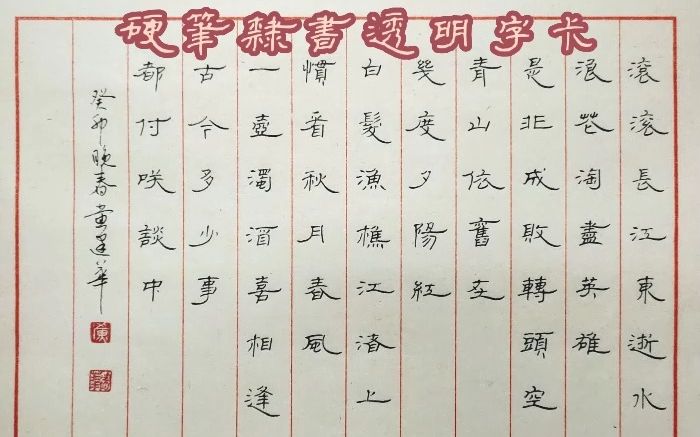 硬筆隸書透明字卡
滾滾長江東逝水
浪花淘盡英雄
是非成敗轉頭空
青山依舊在
幾度夕陽紅
白髮漁樵江渚上
慣看秋月春風
一壺濁酒喜相逢
古今多少事
都付笑談中
癸卯晚春黃建華